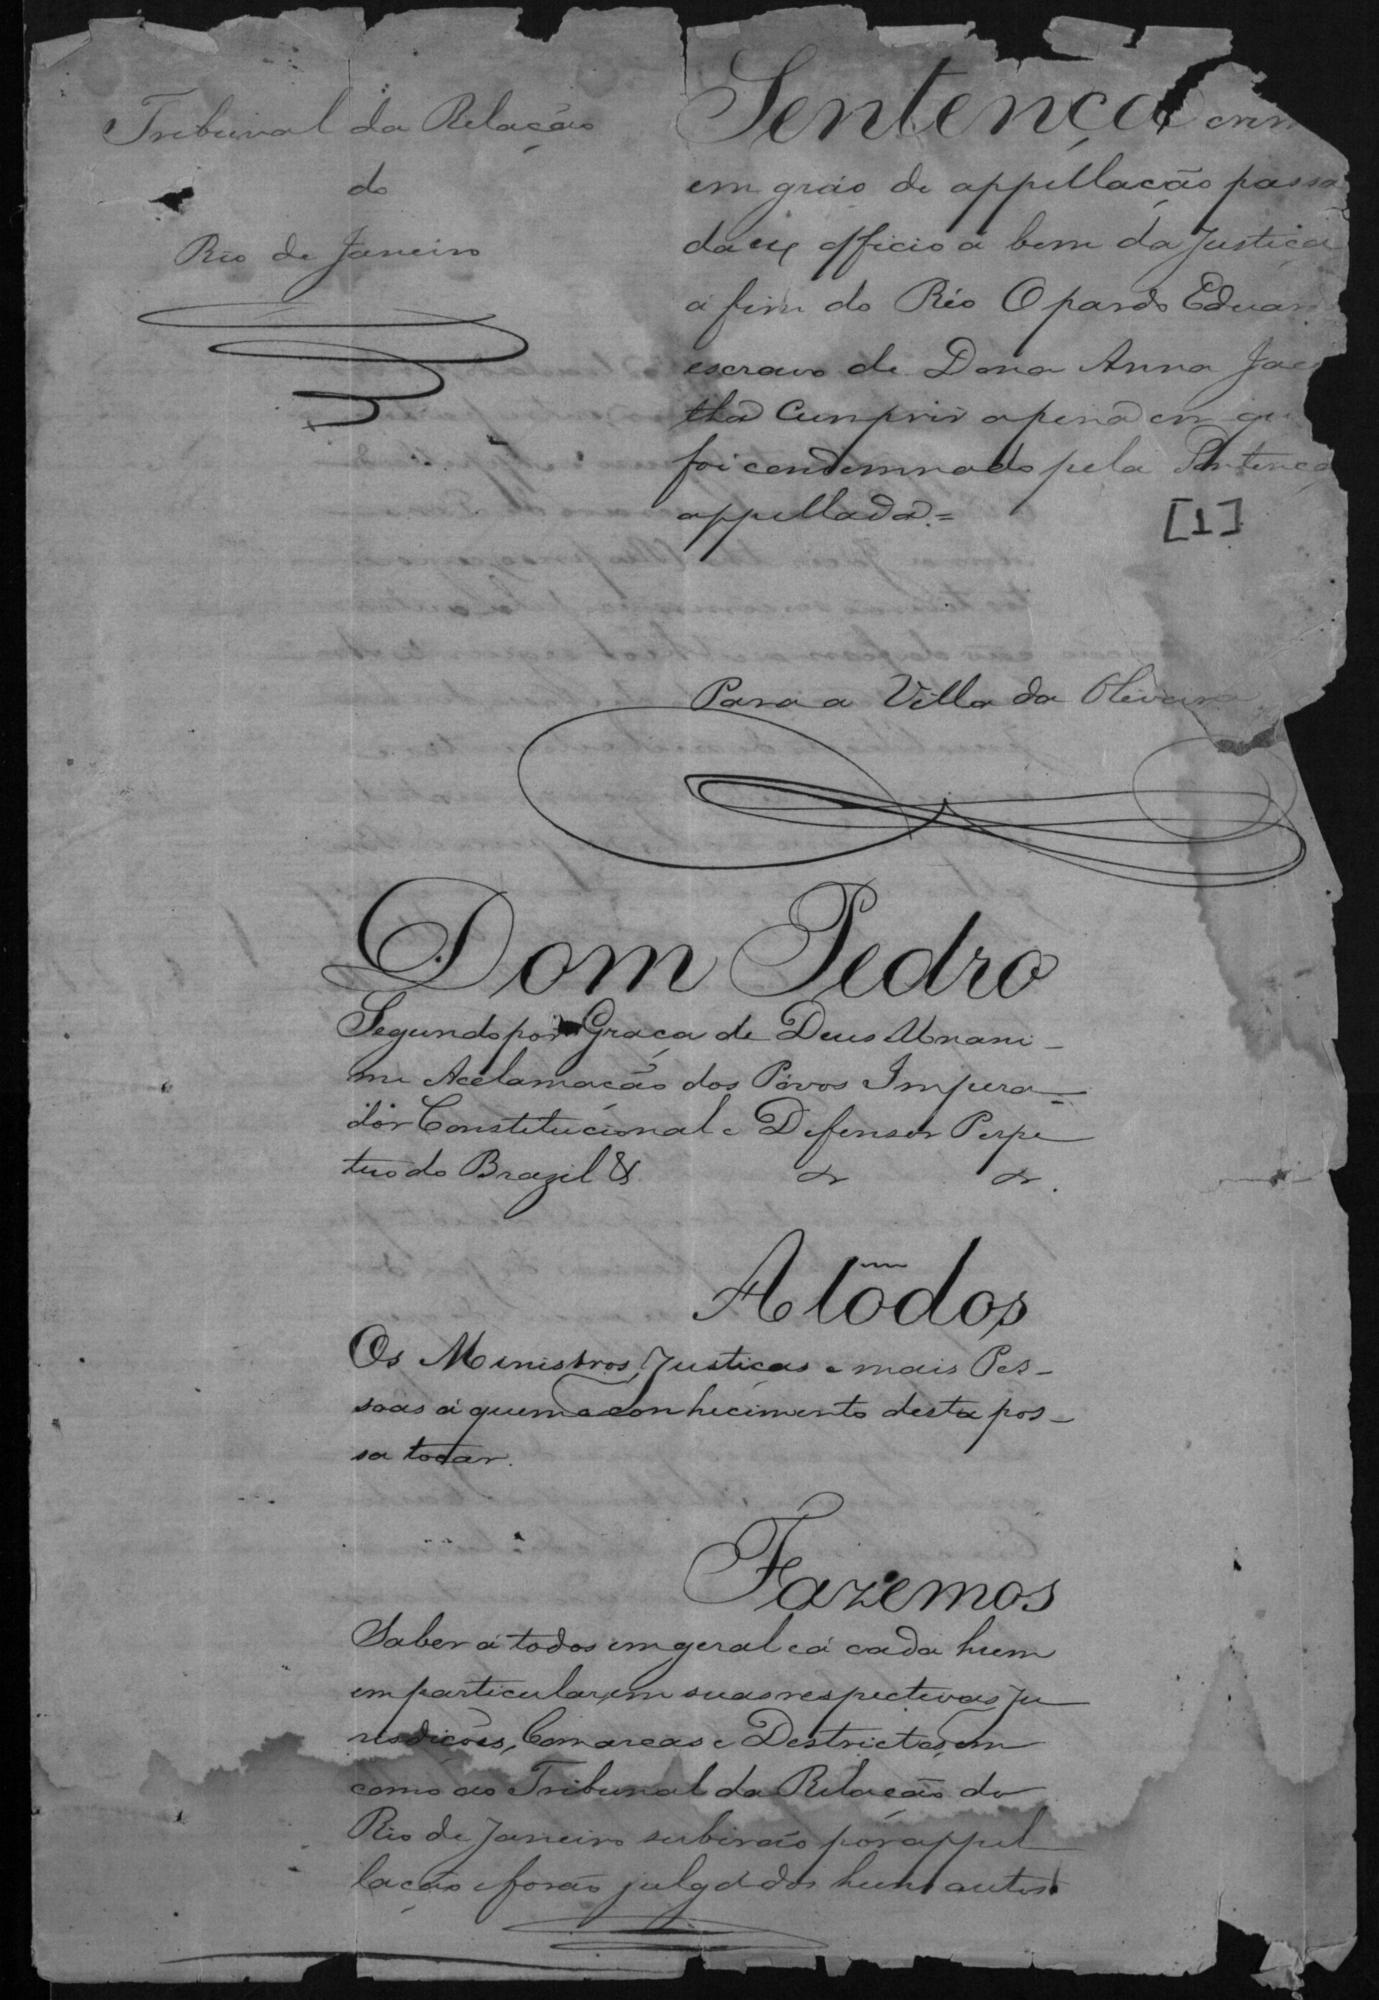 Tribunal da Relação
do
Rio de Janeiro
Sentença crim
em gráo de appellação passa
da ex officio a bem da Justiça
a fim do Réo O pardo Eduar
escravo de Dona Anna Jac
tha cumprir a pena em qu
foi condemnado pela Sentença
appellada =
[1]
Para a Villa da Oliveira
Dom Pedro
Segundo por Graça de Deus Unani-
me Acclamação dos Póvos Impera-
dor Constitucional e Defensor Perpe
tuo do Brazil & & &.
A todos
Os Ministros, Justiças e mais Pes-
soas á quem o conhecimento desta pos-
sa tocar.
Fazemos
Saber á todos em geral e á cada hum
em particular, em suas respectivas Ju
risdicões, Comarcas e Destrictos, em
como ao Tribunal da Relação do
Rio de Janeiro subirão por appel
lação e forão julgados huns autos